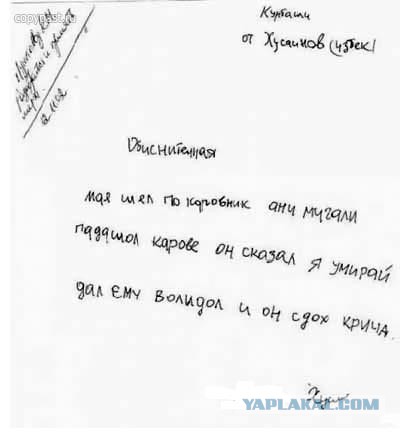 copypast.ru
Курташи
от Хусаинов (узбек)
Обиснителная
мая шел по коровник ани мугали
падашол карове он сказал я умирай
дал ему волидол и он сдох крича.
YAPLAKAL.COM